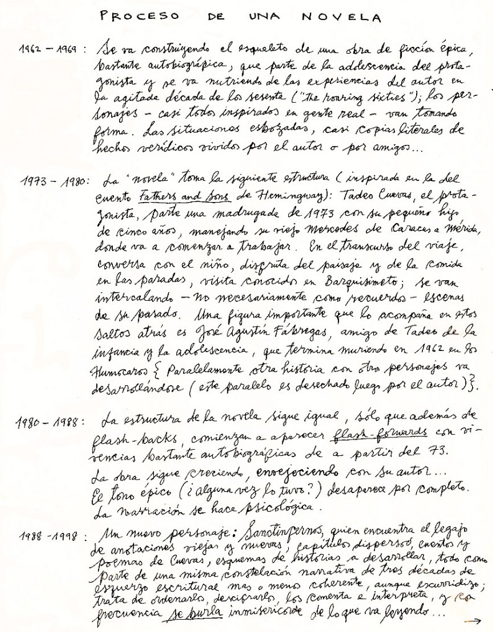 PROCESO DE UNA NOVELA
1962 – 1969: Se va construyendo el esqueleto de una obra de ficción épica,
bastante autobiográfica, que parte de la adolescencia del prota-
gonista y se va nutriendo de las experiencias del autor en
la agitada década de los sesenta ("the roaring sixties"); los per-
sonajes – casi todo inspirados en gente real – van tomando
forma. Las situaciones esbozadas, casi copias literales de
hechos verídicos vividos por el autor o por amigos...
1973 – 1980: La "novela" toma la siguiente estructura (inspirada en la del
cuento Fathers and Sons de Hemingway): Tadeo Cuevas, el prota-
gonista, parte una madrugada de 1973 con su pequeño hijo
de cinco años, manejando su viejo mercedes de Caracas a Mérida,
donde va a comenzar a trabajar. En el transcurso del viaje,
conversa con el niño, disfruta del paisaje y de la comida
en las paradas, visita conocido en Barquisimeto; se van
intercalando – no necesariamente como recuerdos – escenas
de su pasado. Una figura importante que lo acompaña en estos
saltos atrás es José Agustín Fábregas, amigo de Tadeo de la
infancia y la adolescencia, que termina muriendo en 1962 en los
Humocaros { Paralelamente otra historia con otro personajes va
desarrollándose (este paralelo es desechado luego por el autor)}.
1980 – 1988: La estructura de la novela sigue igual, sólo que además de
flash-backs, comienzan a aparecer flash-forwards con vi-
vencias bastante autobiográficas de a partir del 73.
La obra sigue creciendo, envejeciendo con su autor...
El tono épico (¿Alguna vez lo tuvo?) desaparece por completo.
La narración se hace psicológica.
1988 - 1998: Un nuevo personaje: Sanctinfernos, quien encuentra el legajo
de anotaciones viejas y nuevas, capítulos dispersos, cuentos y
poemas de Cuevas, esquemas de historias a desarrollar, todo como
parte de una misma constelación narrativa de tres décadas de
esfuerzo escritural más o menos coherente, aunque escurridizo;
trata de ordenarlo, descifrarlo, los comenta e interpreta, y con
frecuencia se burla inmisericorde de lo que va leyendo... →